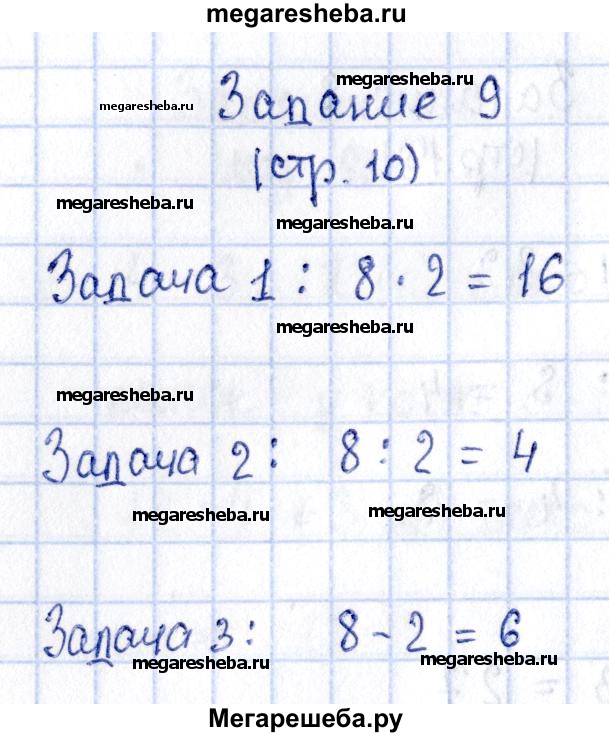 megaresheba.ru
megaresheba.ru
megaresheba.ru
Задание 9
(стр. 10)
megaresheba.ru
megaresheba.ru
Задача 1: 8 · 2 = 16
megaresheba.ru
megaresheba.ru
Задача 2: 8 : 2 = 4
megaresheba.ru
megaresheba.ru
Задача 3: 8 - 2 = 6
megaresheba.ru
megaresheba.ru
Мегарешеба.ру